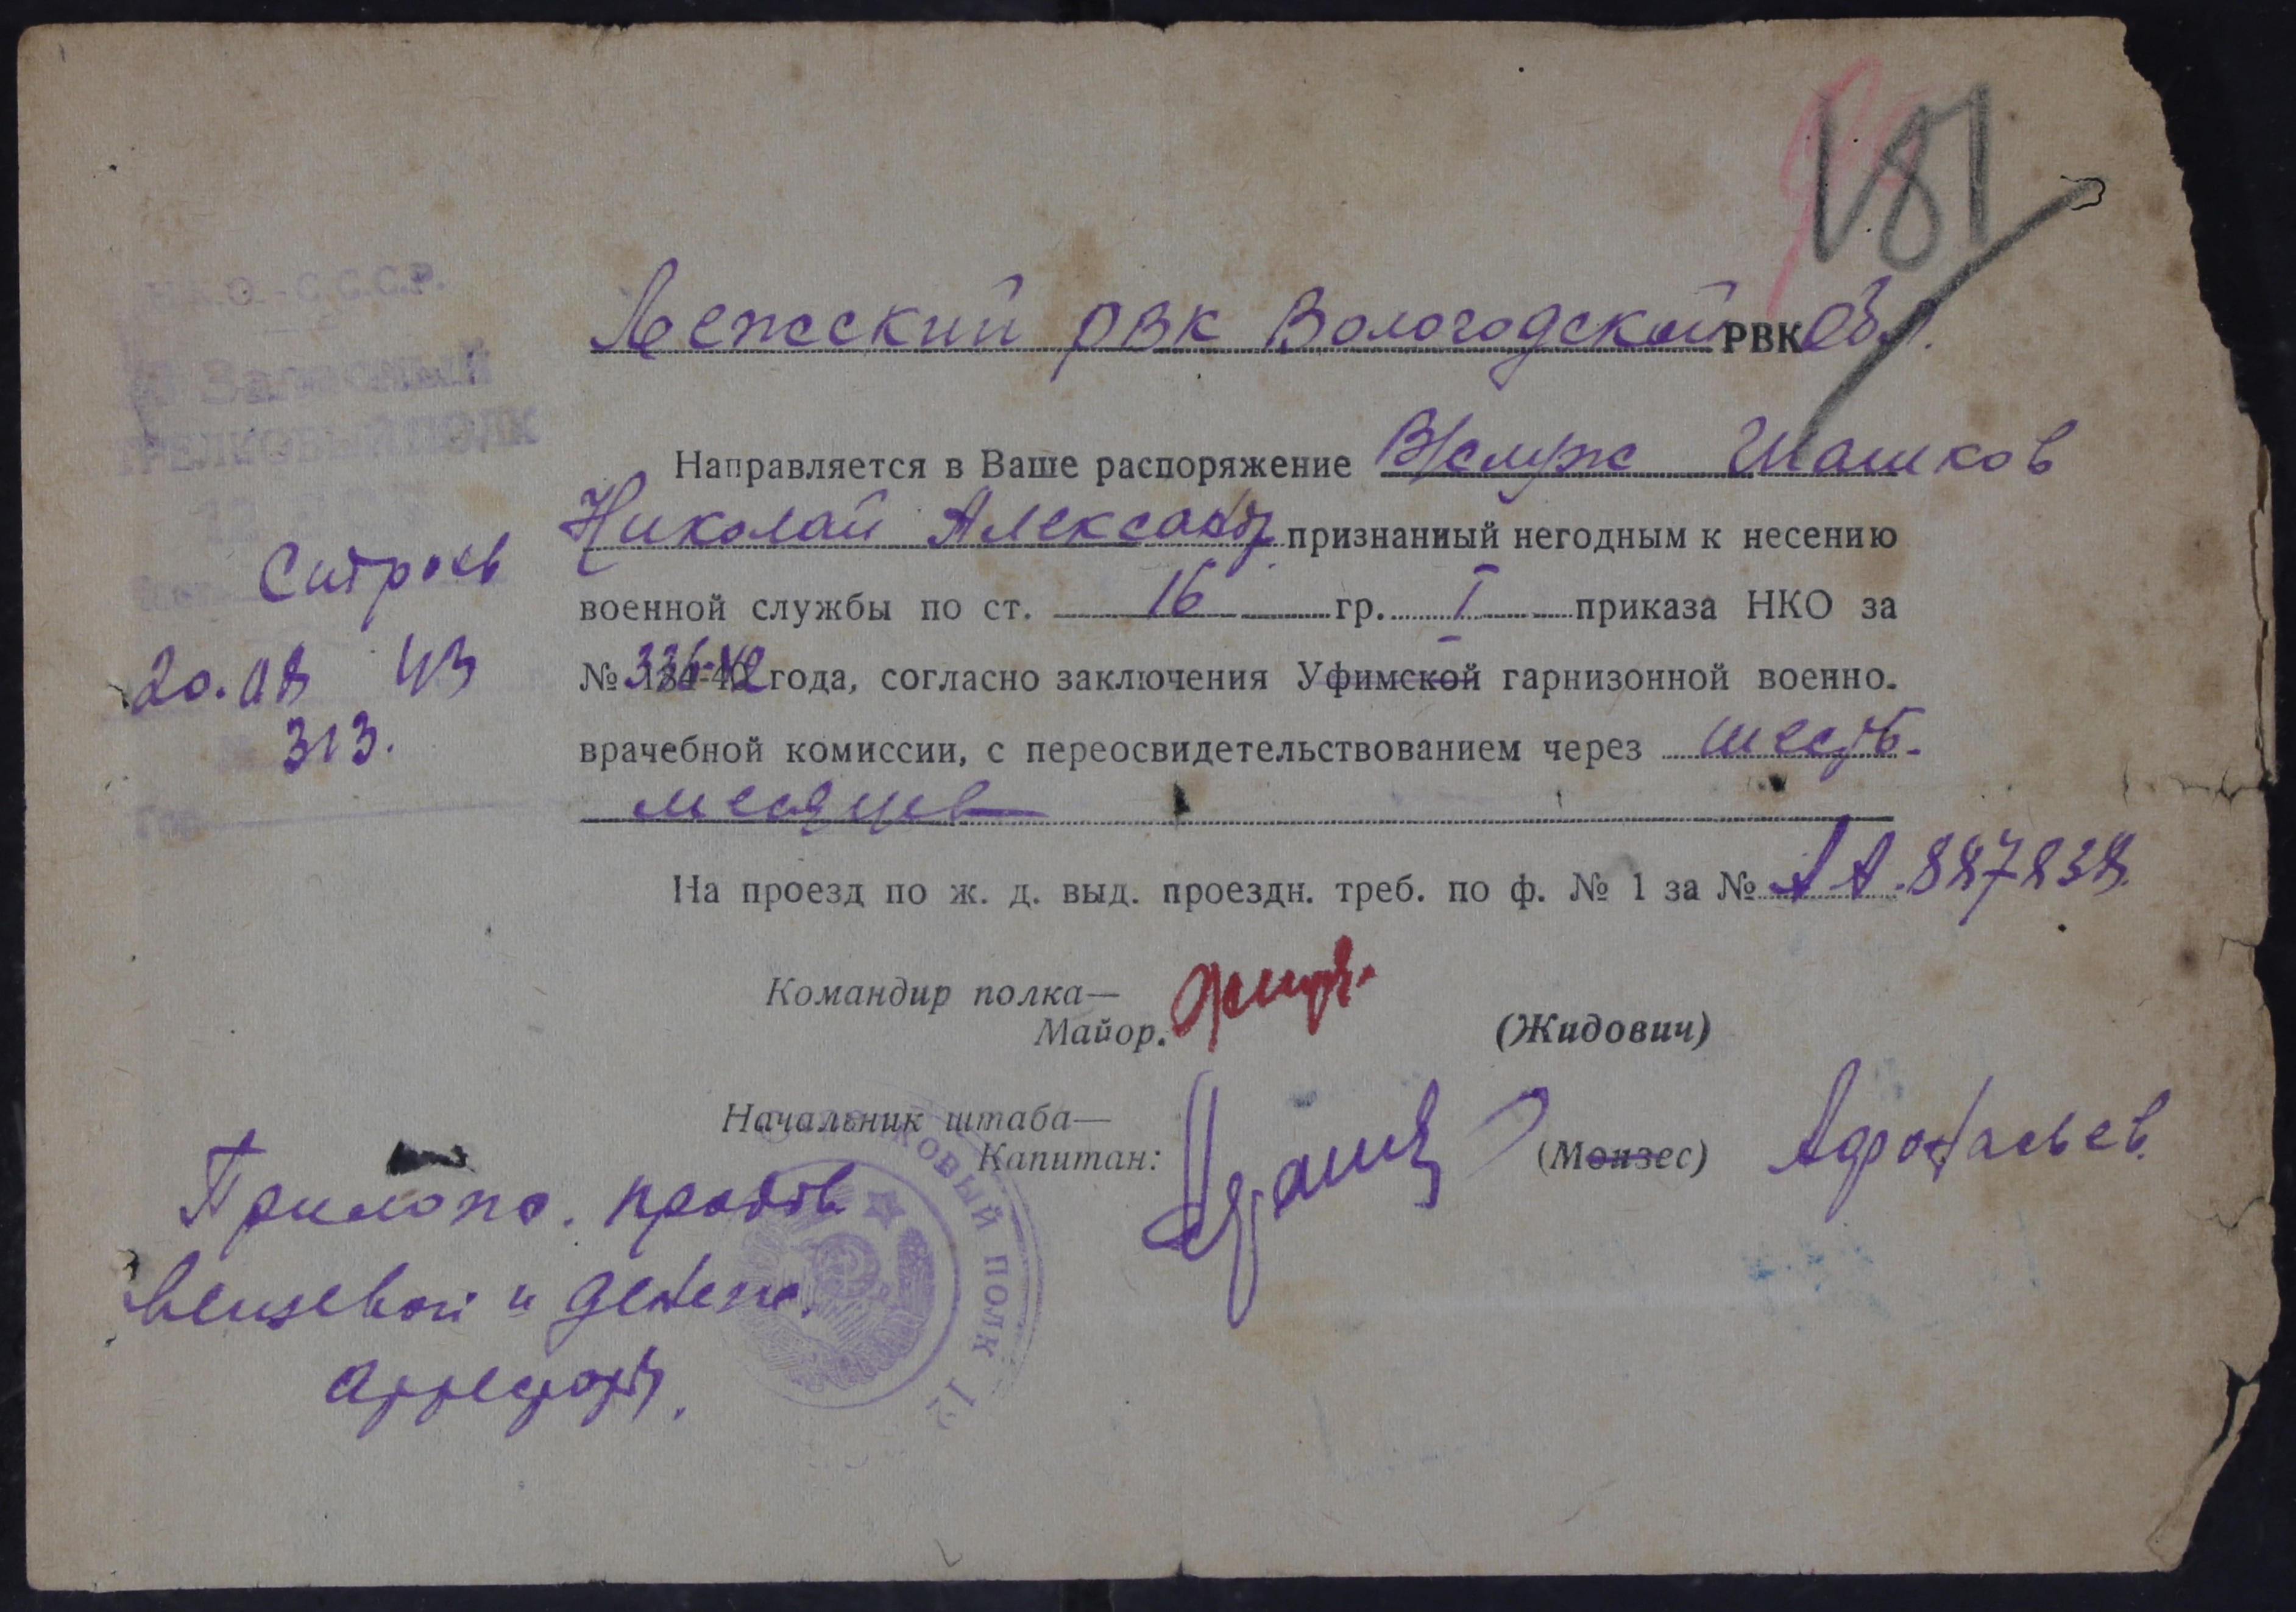 181
Н.К.О. - С.С.С.Р.
Запасный
СТРЕЛКОВЫЙ ПОЛК
12
Лежский РВК Вологодской РВК Обл.
Направляется в Ваше распоряжение В/служ Шашков
Николай Александр. признанный негодным к несению
военной службы по ст. 16 гр. I приказа НКО за
№ 336-42 года, согласно заключения Уфимской гарнизонной военно-
врачебной комиссии, с переосвидетельствованием через шесть
месяцев
20.08 43
№ 313.
На проезд по ж. д. выд. проездн. треб. по ф. № 1 за № АА.887838.
Командир полка—
Майор.
(Жидович)
Начальник штаба—
Капитан:
(Монзес) Афонасьев.
Прилож. продов
вещевой и денеж.
аттестат.
КОВЫЙ ПОЛК 12